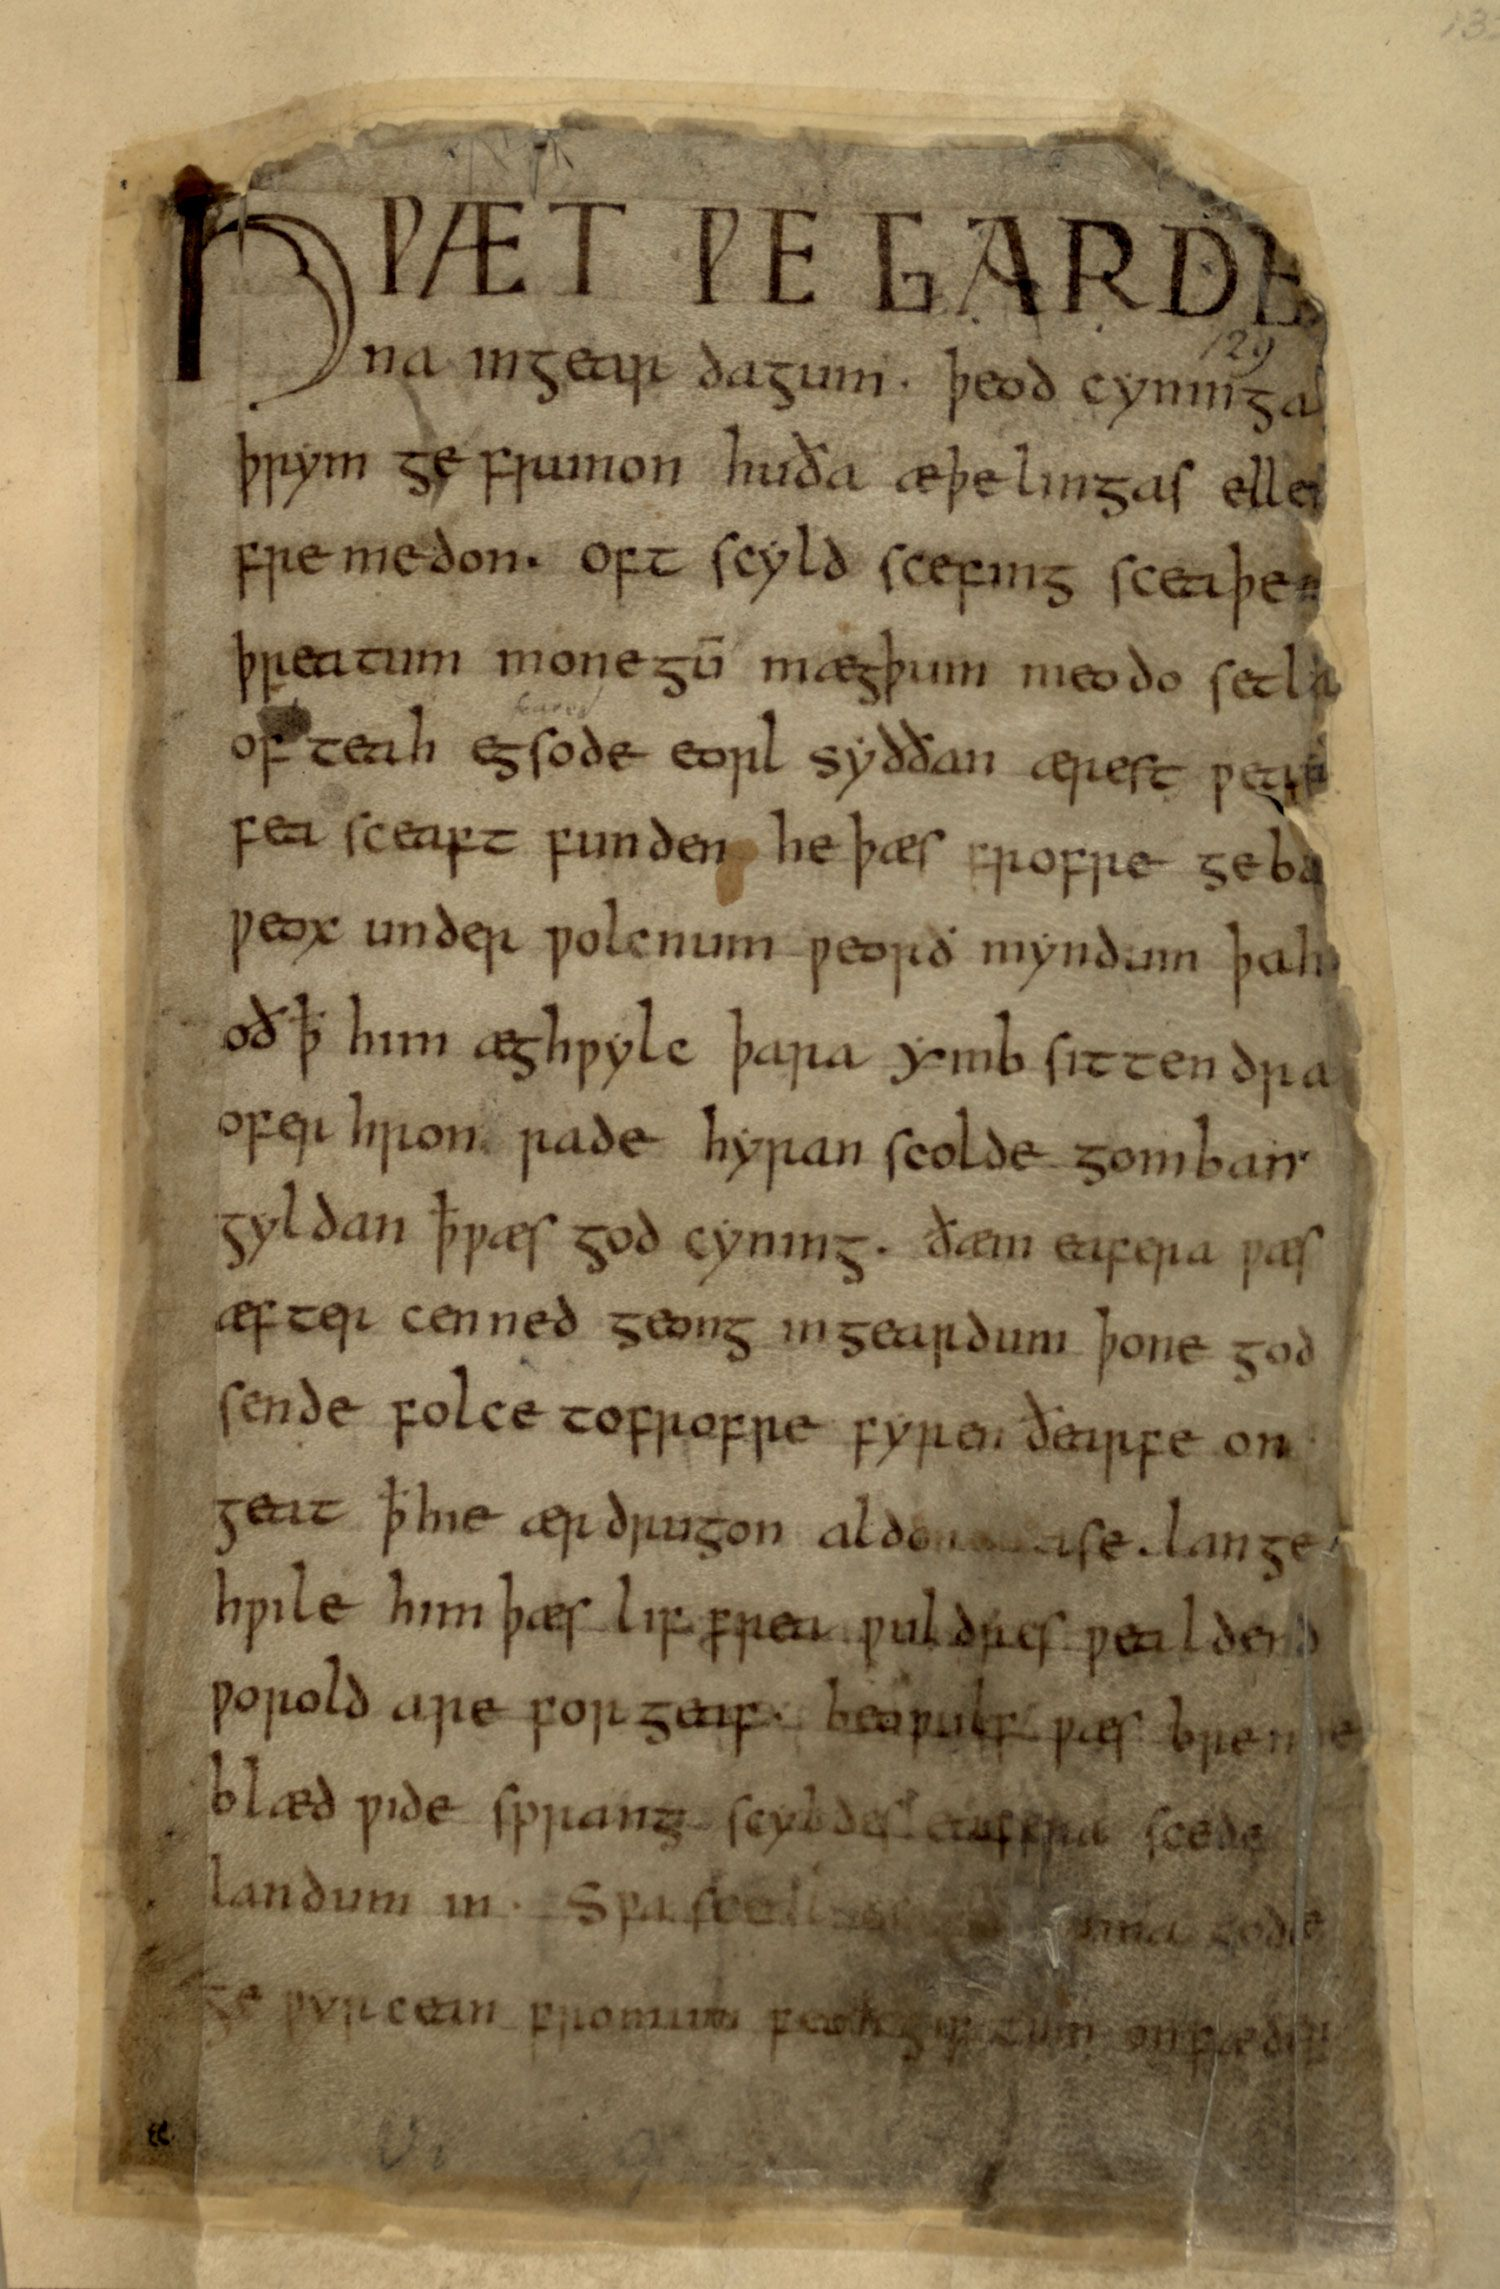 HǷÆT ǷE GARDE
na ingear dagum. þeod cyninga
þrym ge frunon huða æþelingas elle
fre medon. oft scyld scefing sceaþe
þreatum monegū mægþum meodo setla
of teah egsode eorl syððan ærest ƿear
fea sceaft funden he þæs frofre geba
ƿeox under ƿolcnum ƿeorð myndum þah
oð ꝥ him æghƿylc þara ymb sittendra
ofer hron rade hyran scolde gomban
gyldan ꝥ ƿæs god cyning. ðæm eafera ƿæs
æfter cenned geong ingeardum þone god
sende folce tofrofre fyren ðearfe on
geat ꝥ hie ær drugon lange
hƿile him þæs lif frea ƿuldres ƿealdend
ƿorold are for geaf. beoƿulf ƿæs breme
blæd ƿide sprang scyldes eafera scede
landum in. Sƿa gode
ge ƿyrcean fromum feoh giftum on fæder
129